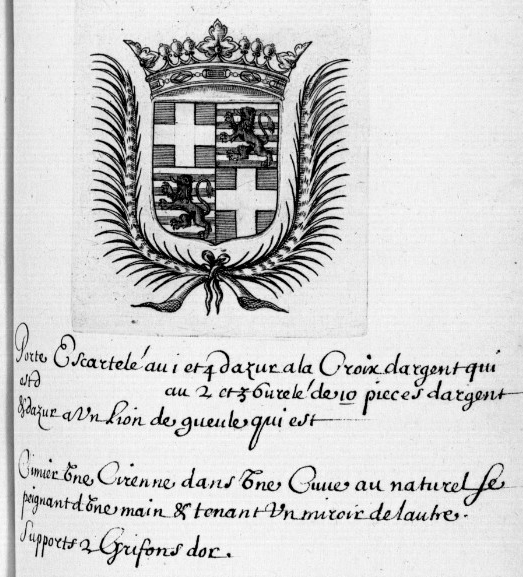 Porte Escartelé au 1 et 4 dazur a la Croix dargent qui
est d au 2 et 3 burelé de 10 pieces dargent
& dazur a Vn Lion de gueule qui est
Cimier Vne Cirenne dans Vne Cuue au naturel se
peignant dVne main & tenant Vn miroir de lautre.
Supports 2 Grifons dor.